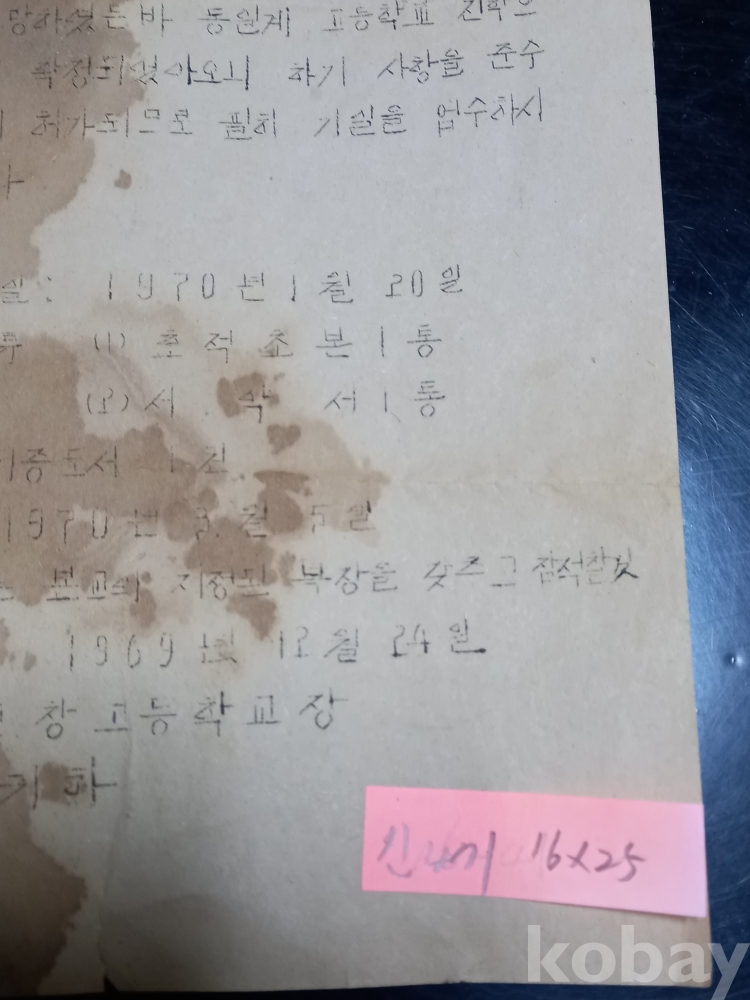 당하셨는바 동일계 고등학교 진학으
확정되섯아오니 하기 사항을 준수
허가되므로 필히 기일을 엄수하시
일: 1970년 1월 20일
(1) 호적초본 1통
(2) 서약서 1통
기증도서 1권
1970년 3월 5일
본교의 지정된 복장을 갖추고 참석할것
1969년 12월 24일
창고등학교장
기하
16x25
kobay